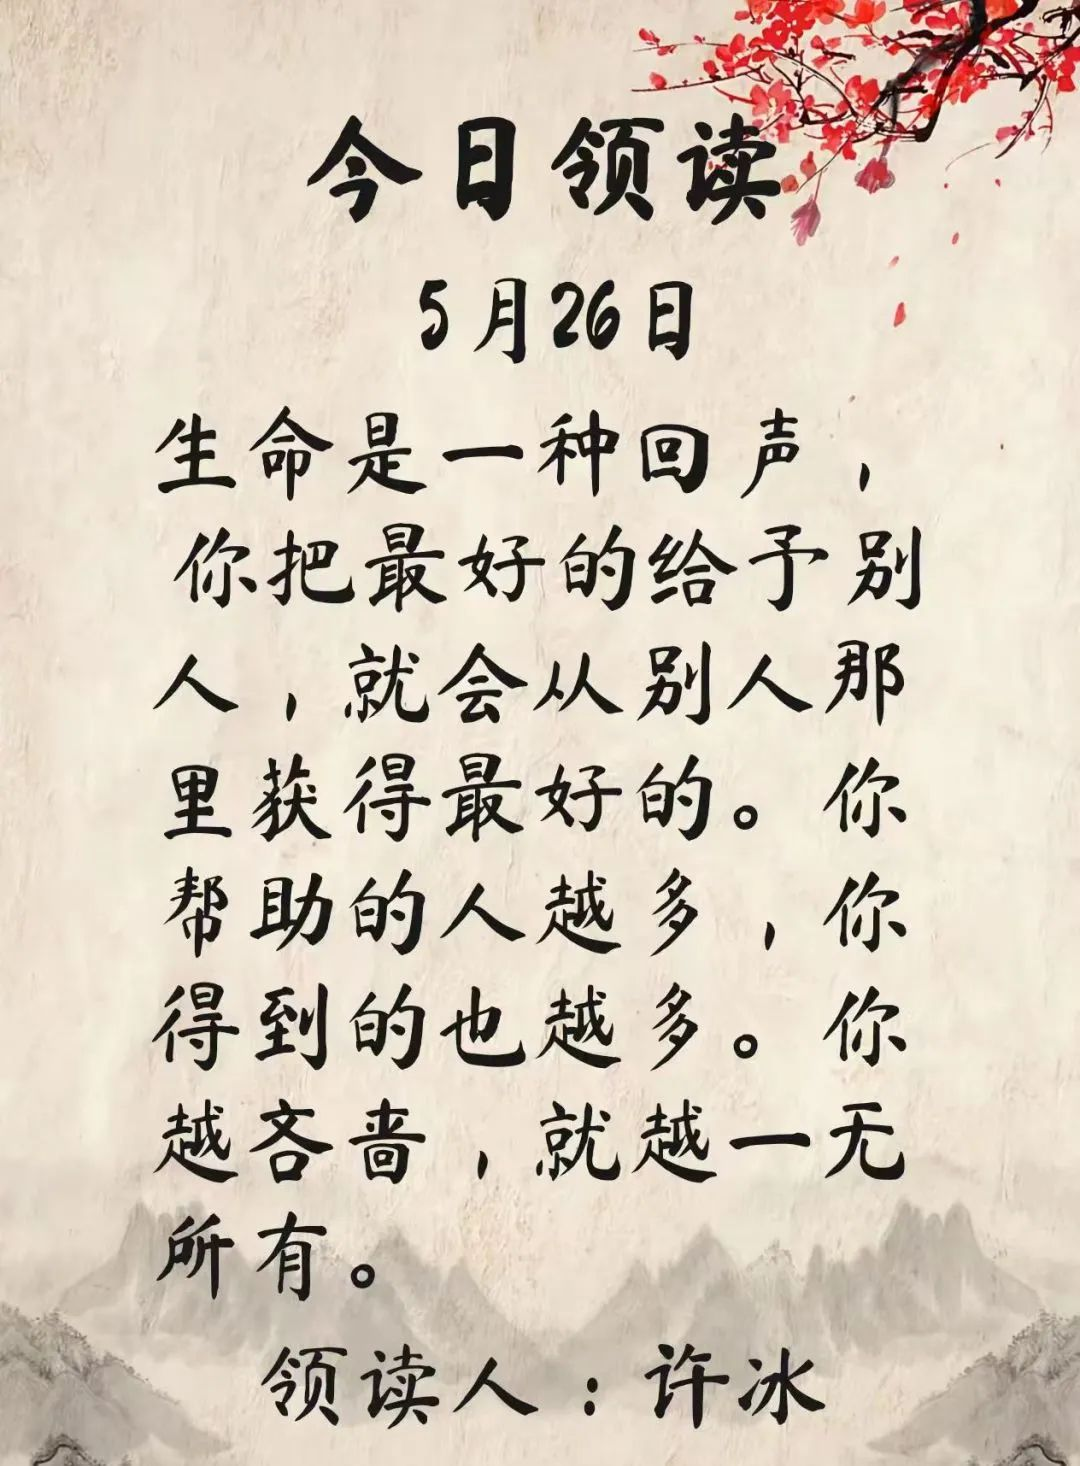 今日领读
5月26日
生命是一种回声，
你把最好的给予别
人，就会从别人那
里获得最好的。你
帮助的人越多，你
得到的也越多。你
越吝啬，就越一无
所有。
领读人：许冰